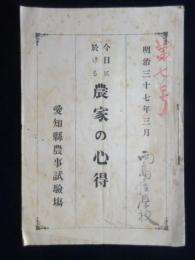 第七号
明治三十七年三月
今日に
於ける
農家の心得
愛知縣農事試驗塲